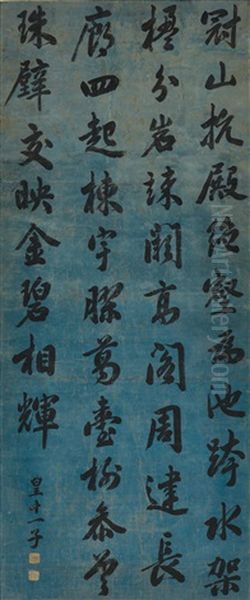 冠山抗殿絕壑為池跨水架
楹分岩竦闕高閣周建長
廊四起棟宇膠葛臺榭參差
珠璧交映金碧相輝
皇十一子